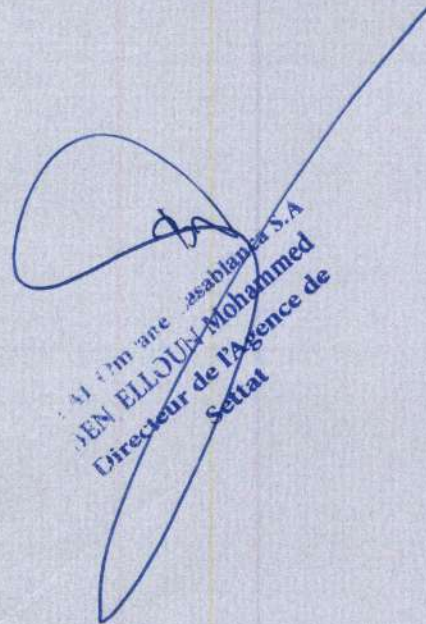 Al Omrane Casablanca S.A
BEN ELLOUN Mohammed
Directeur de l'Agence de
Settat